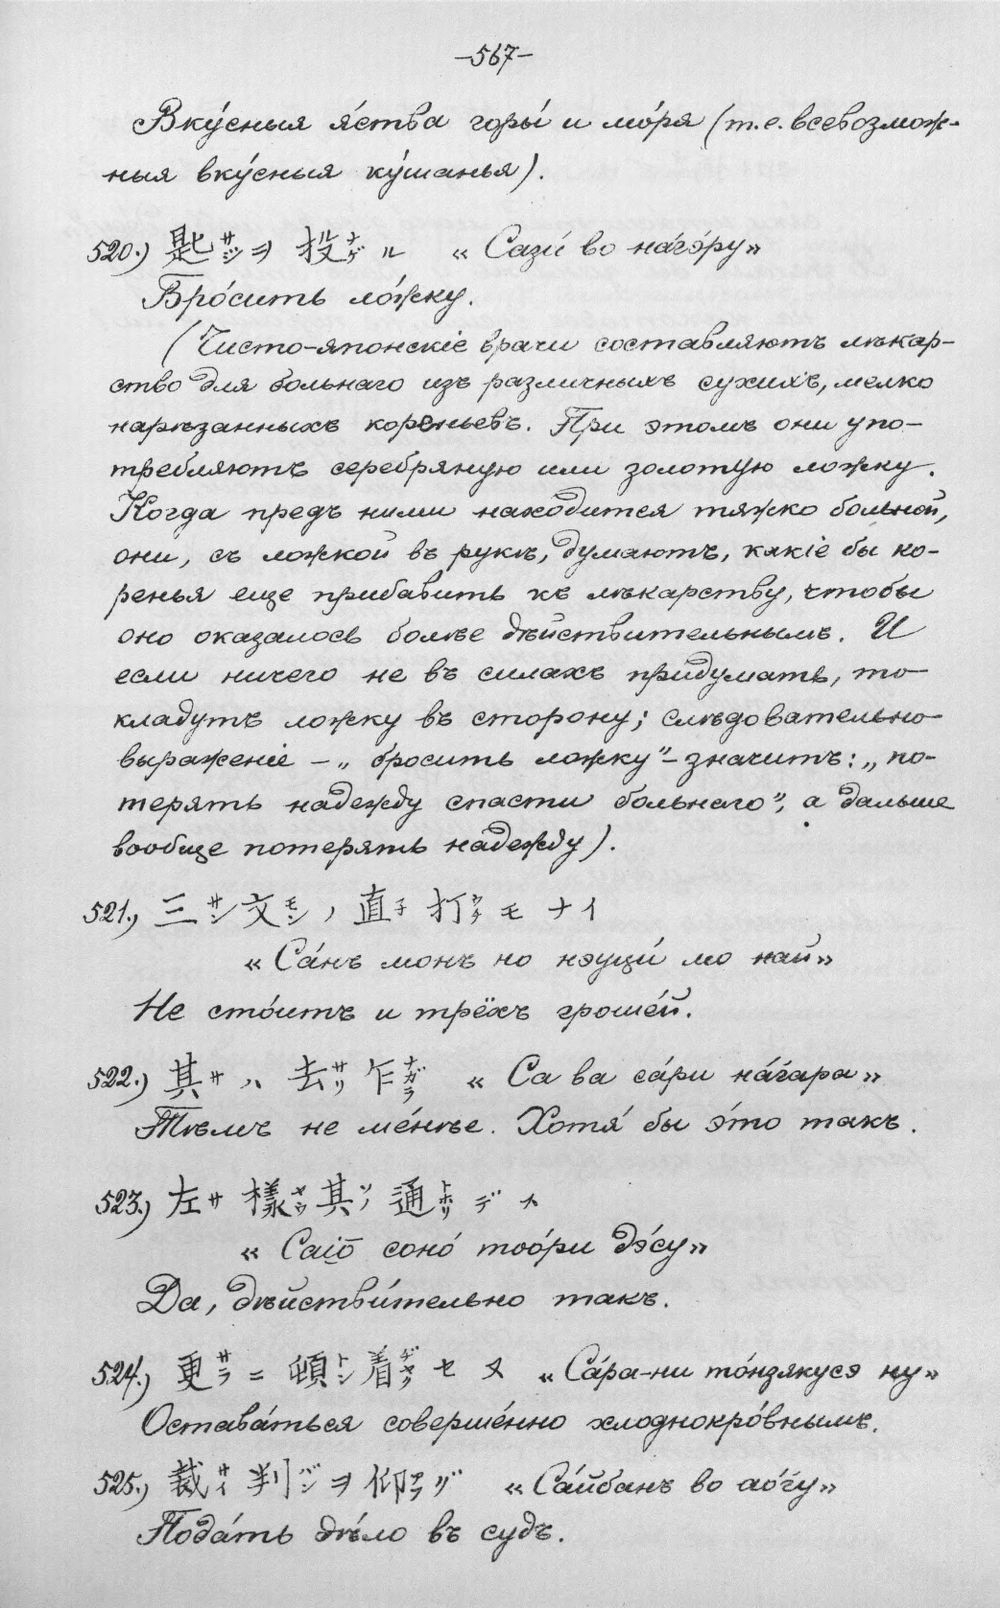 —567—
Вку́сныя я́ства горы́ и мо́ря (т.е. всевозмож-
ныя вку́сныя ку́шанья).
520.) 匙サジヲ 投ナゲル « Сази́ во на́гэ́ру»
Бро́сить ло́жку.
(Чисто-японскіе врачи составляютъ лѣкар-
ство для больнаго изъ различныхъ сухихъ, мелко
нарѣзанныхъ кореньевъ. При этомъ они упо-
требляютъ серебряную или золотую ложку.
Когда предъ ними находится тяжко больной,
они, съ ложкой въ рукѣ, думаютъ, какіе бы ко-
ренья еще прибавить къ лѣкарству, чтобы
оно оказалось болѣе дѣйствительнымъ. И
если ничего не въ силахъ придумать, то
кладутъ ложку въ сторону; слѣдовательно
выраженіе — „ бросить ложку" — значитъ: „ по-
терять надежду спасти больнаго", а дальше
вообще потерять надежду).
521.) 三サン文モンノ 直子打ウチモ ナイ
« Са́нъ монъ но нэуци́ мо най»
Не сто́итъ и трёхъ гроше́й.
522.) 其サハ 去サリ乍ナガラ « Са ва са́ри на́га́ра»
Тѣмъ не ме́нѣе. Хотя́ бы э́то такъ.
523.) 左サ様ヤウ其ソノ通トホリデス
« Саіō соно́ тоо́ри дэ́су»
Да, дѣйстви́тельно такъ.
524.) 更サラニ 頓トン着ヂヤクセヌ «Са́ра-ни то́нзякусэ ну»
Остава́ться соверше́нно хлоднокро́внымъ.
525.) 裁サイ判バンヲ仰アフグ «Са́йбанъ во ао́гу»
Пода́ть дѣ́ло въ судъ.